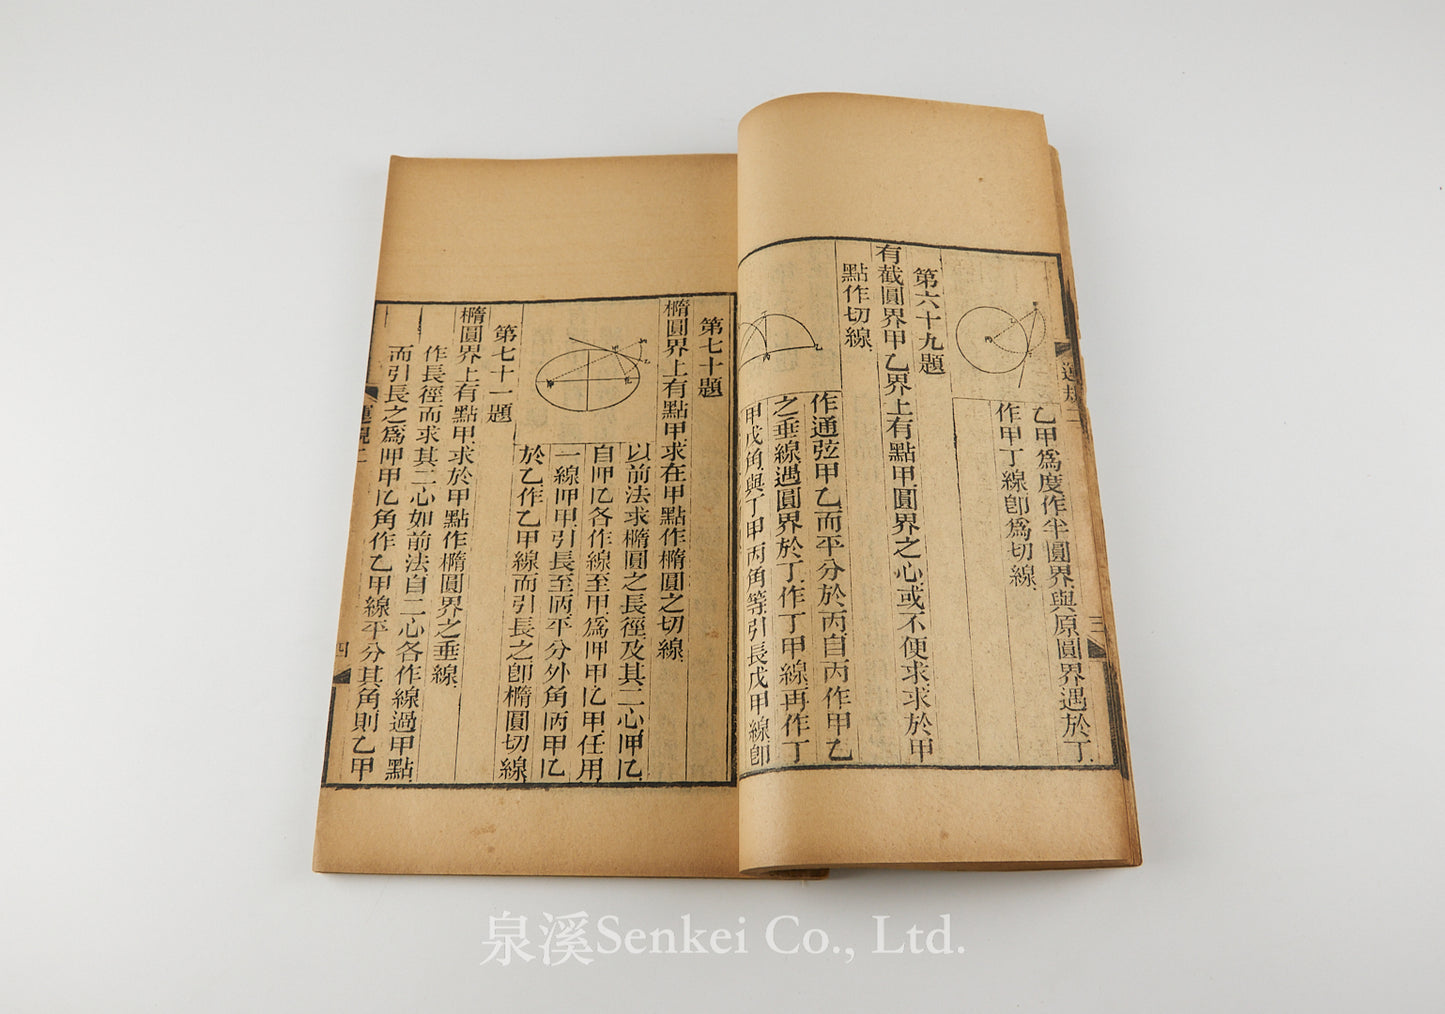 乙甲爲度作半圓界與原圓界遇於丁
作甲丁線卽爲切線
第六十九題
有截圓界甲乙界上有點甲圓界之心或不便求求於甲
點作切線
作通弦甲乙而平分於丙自丙作甲乙
之垂線遇圓界於丁作丁甲線再作丁
甲戊角與丁甲丙角等引長戊甲線卽
運規二
三
第七十題
橢圓界上有點甲求在甲點作橢圓之切線
以前法求橢圓之長徑及其二心呷𠮙
自呷𠮙各作線至甲爲呷甲𠮙甲任用
一線呷甲引長至昞平分外角昞甲𠮙
於乙作乙甲線而引長之卽橢圓切線
第七十一題
橢圓界上有點甲求於甲點作橢圓界之垂線
作長徑而求其二心如前法自二心各作線過甲點
而引長之爲呷甲𠮙角作乙甲線平分其角則乙甲
運規二
四
泉溪Senkei Co., Ltd.